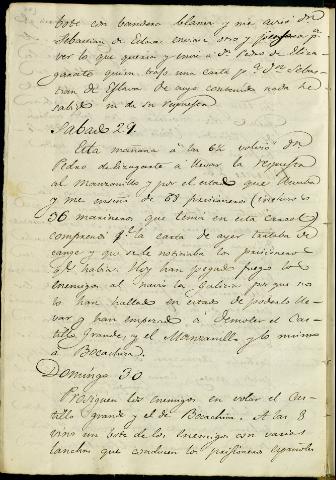 bote con bandera blanca y me avisó Dn
Sebastian de Eslava enviase otro y persona pa
ver lo que queria y envié á Dn Pedro de Eliza-
garate quien trajo una carta pa Dn Sebas-
tian de Eslava de cuyo contenido nada he
sabido ni de su respuesta
Sabado 29.
Esta mañana á las 6½ volvió Dn
Pedro de Elizagarate á llevar la respuesta
al Manzanillo y por el estado que
y me enseña de 68 prisioneros inclusos
36 marineros que tenia en esta
comprendi qe la carta de ayer trataba de
cange y que se le notinaba los prisioneros
qe habia. Hoy han pegado fuego los
enemigos al navio la Galicia por que no
lo han hallado en estado de poderlo lle-
var y han empezado á demoler el Cas-
tillo Grande, y el Manzanillo y lo mismo
á Bocachica.
Domingo 30
Prosiguen los enemigos en volar el Cas-
tillo grande y el de Bocachica. A las 8
vino un bote de los enemigos con varias
lanchas que conducen los prisioneros españoles